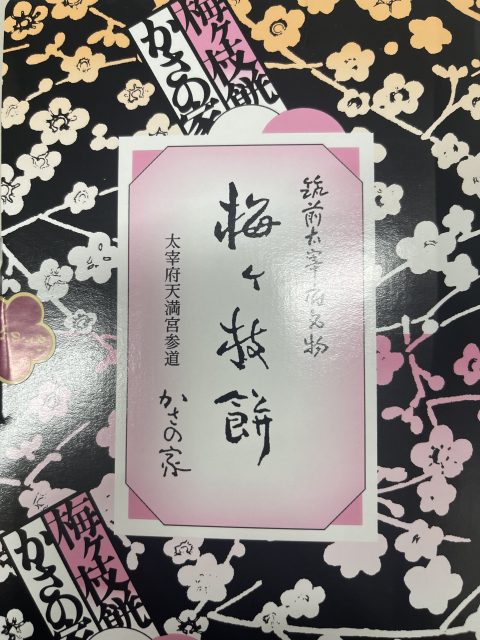 梅ヶ枝餅
かさの家
筑前太宰府名物
梅ヶ枝餅
太宰府天満宮参道
かさの家
梅ヶ枝餅
かさの家